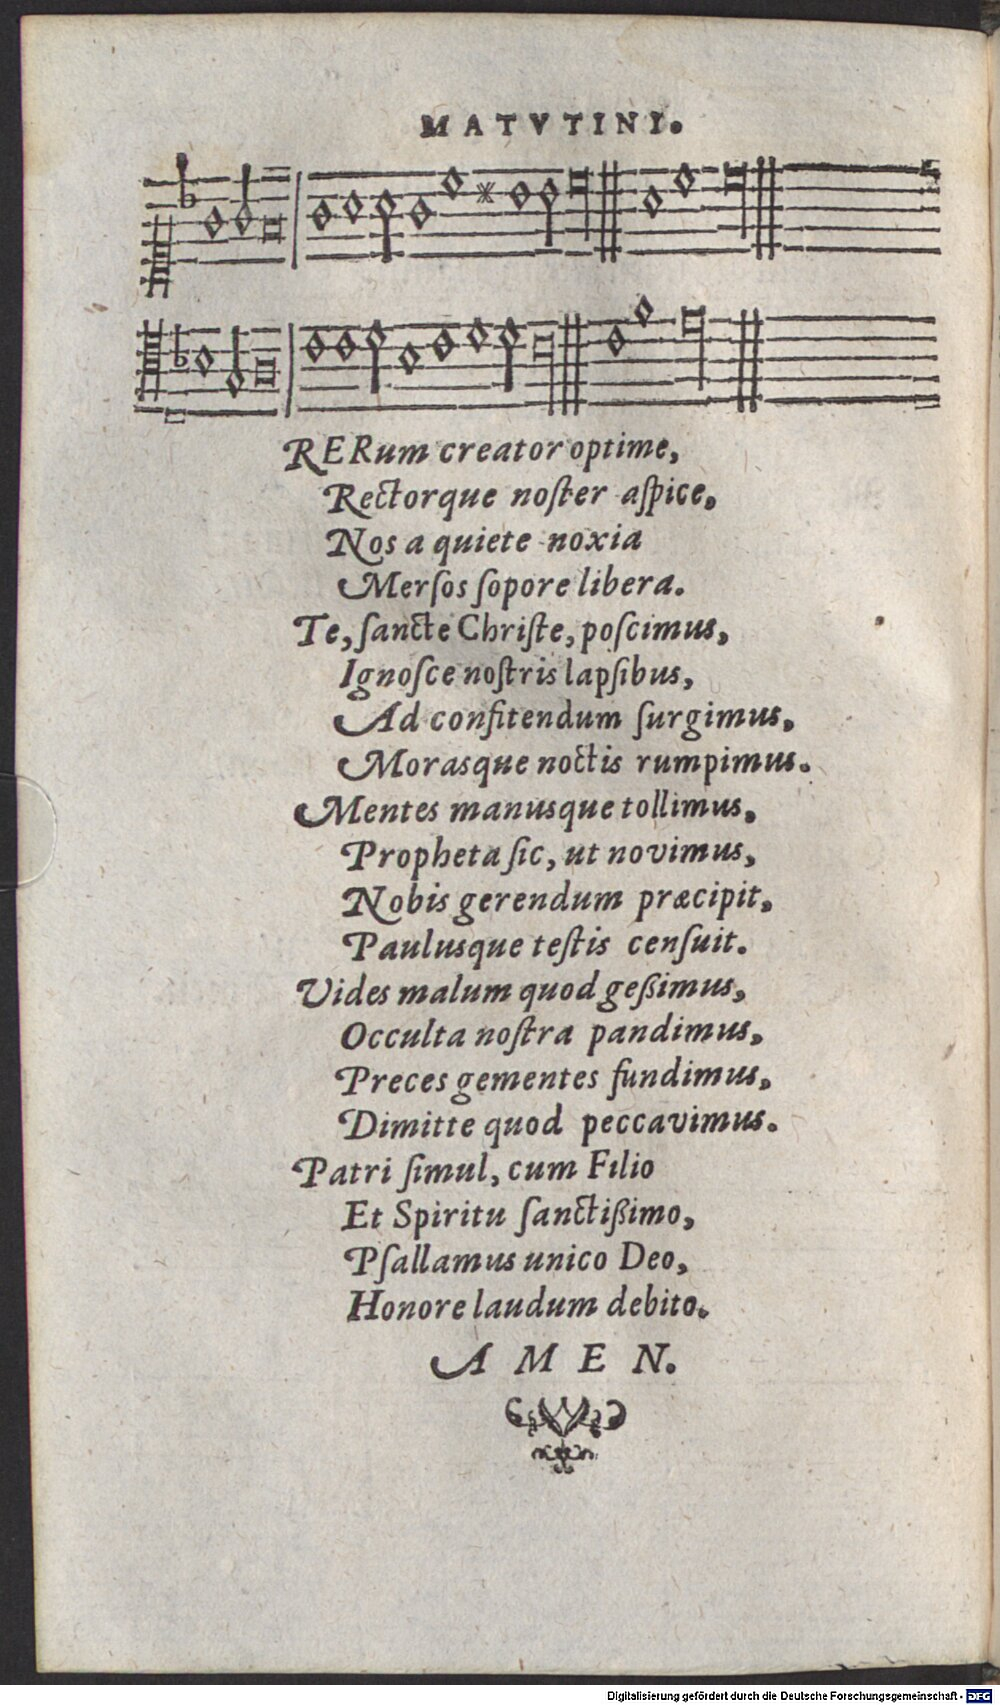 MATVTINI.
RERum creator optime,
Rectorque noſter aſpice,
Nos a quiete noxia
Merſos ſopore libera.
Te, ſancte Chriſte, poſcimus,
Ignoſce noſtris lapſibus,
Ad confitendum ſurgimus,
Morasque noctis rumpimus.
Mentes manusque tollimus,
Propheta ſic, ut novimus,
Nobis gerendum præcipit,
Paulusque teſtis cenſuit.
Vides malum quod geßimus,
Occulta noſtra pandimus,
Preces gementes fundimus,
Dimitte quod peccavimus.
Patri ſimul, cum Filio
Et Spiritu ſanctißimo,
Pſallamus unico Deo,
Honore laudum debito.
AMEN.
Digitalisierung gefördert durch die Deutsche Forschungsgemeinschaft - DFG